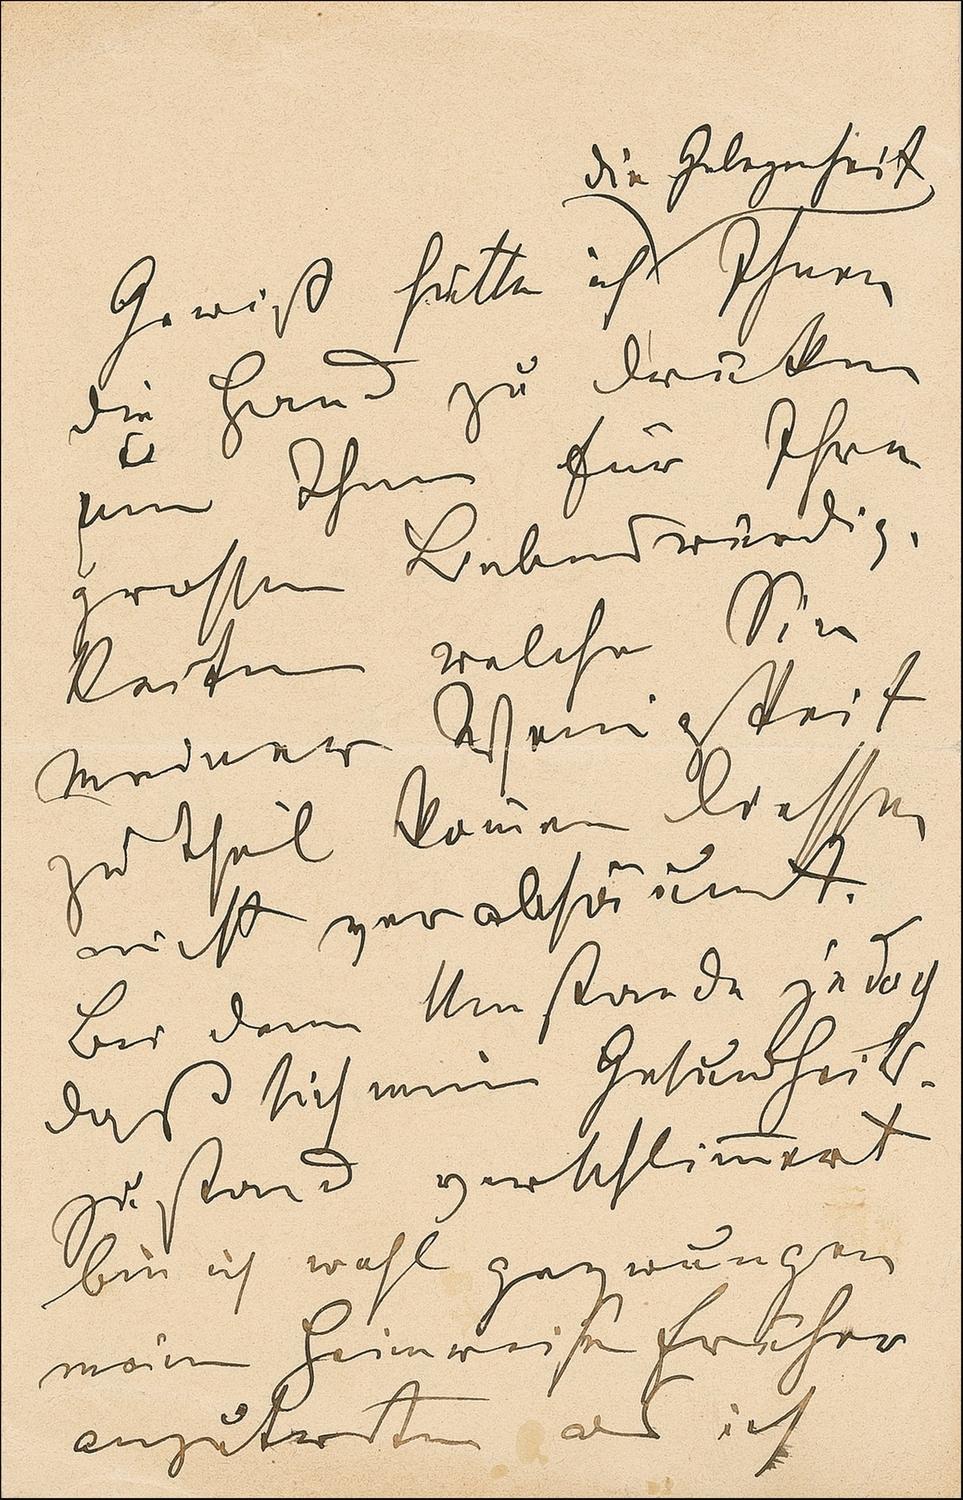 die Gelegenheit
Gewiß hätte ich Ihnen
die Hand zu drücken
u
um Ihnen für Ihre
grossen Liebenswürdig-
keiten welche Sie
meiner Wenigkeit
zu theil kom̄en liessen
nicht verabsäumt.
Bei dem Umstande jedoch
daß sich mein Gesundheits-
zustand verschlim̄ert
bin ich wohl gezwungen
meine Heimreise früher
anzutreten als ich